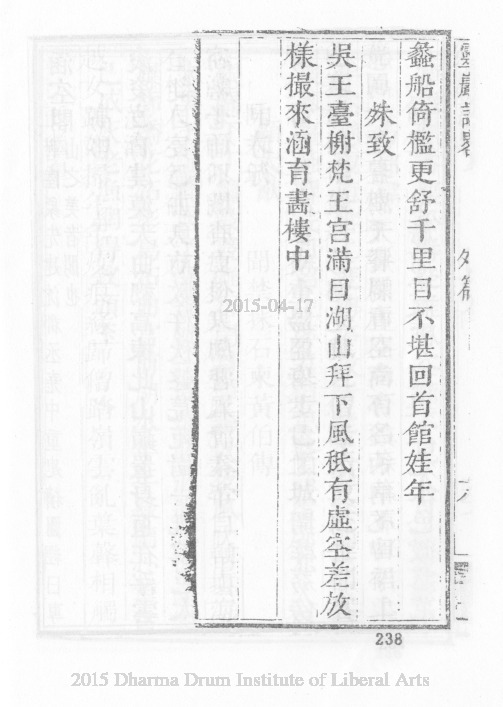 蠡船倚檻更舒千里目不堪回首館娃年
姝致
吳王臺榭梵王宮滿目湖山拜下風秖有虛空差放
樣撮來涵育畵樓中
2015-04-17
238
2015 Dharma Drum Institute of Liberal Arts